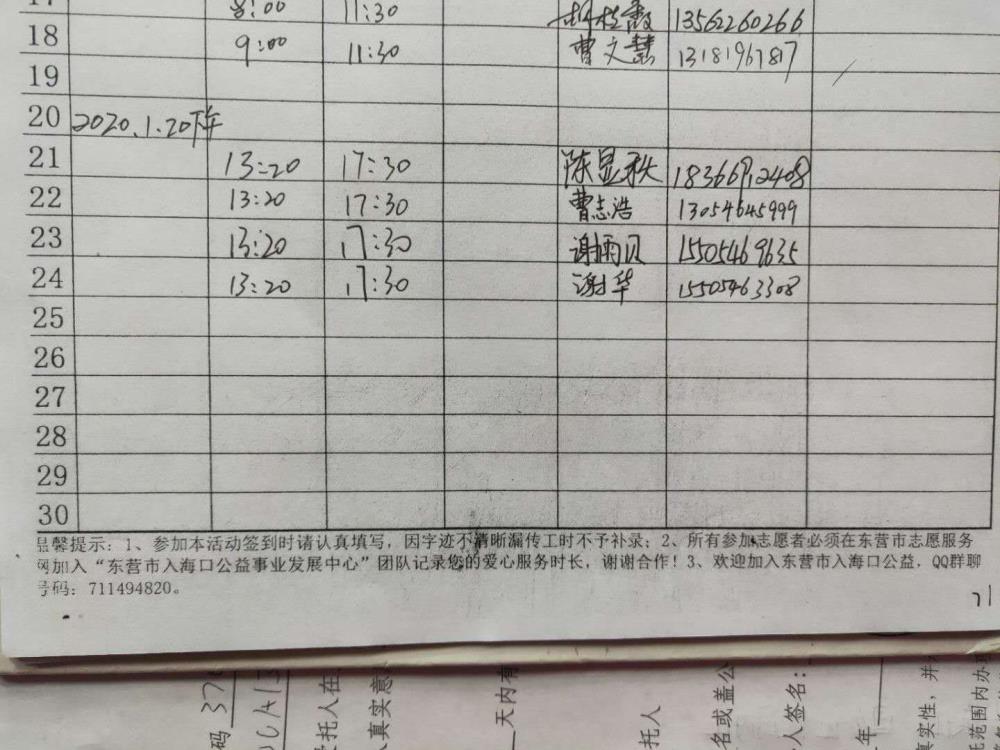 17 8:00 11:30 13562260266
18 9:00 11:30 曹文慧 13181967817
19
20 2020.1.20下午
21 13:20 17:30 陈显秋
22 13:20 17:30 曹志浩 13054645999
23 13:20 17:30 谢雨贝 15505469635
24 13:20 17:30 谢华 15505463308
25
26
27
28
29
30
温馨提示：1、参加本活动签到时请认真填写，因字迹不清晰漏传工时不予补录；2、所有参加志愿者必须在东营市志愿服务
网加入“东营市入海口公益事业发展中心”团队记录您的爱心服务时长，谢谢合作！3、欢迎加入东营市入海口公益，QQ群聊
号码：711494820。
码 37
托人在
真实意
天内有
托人
名或盖公
人签名：
年
真实性，并
托范围内办理